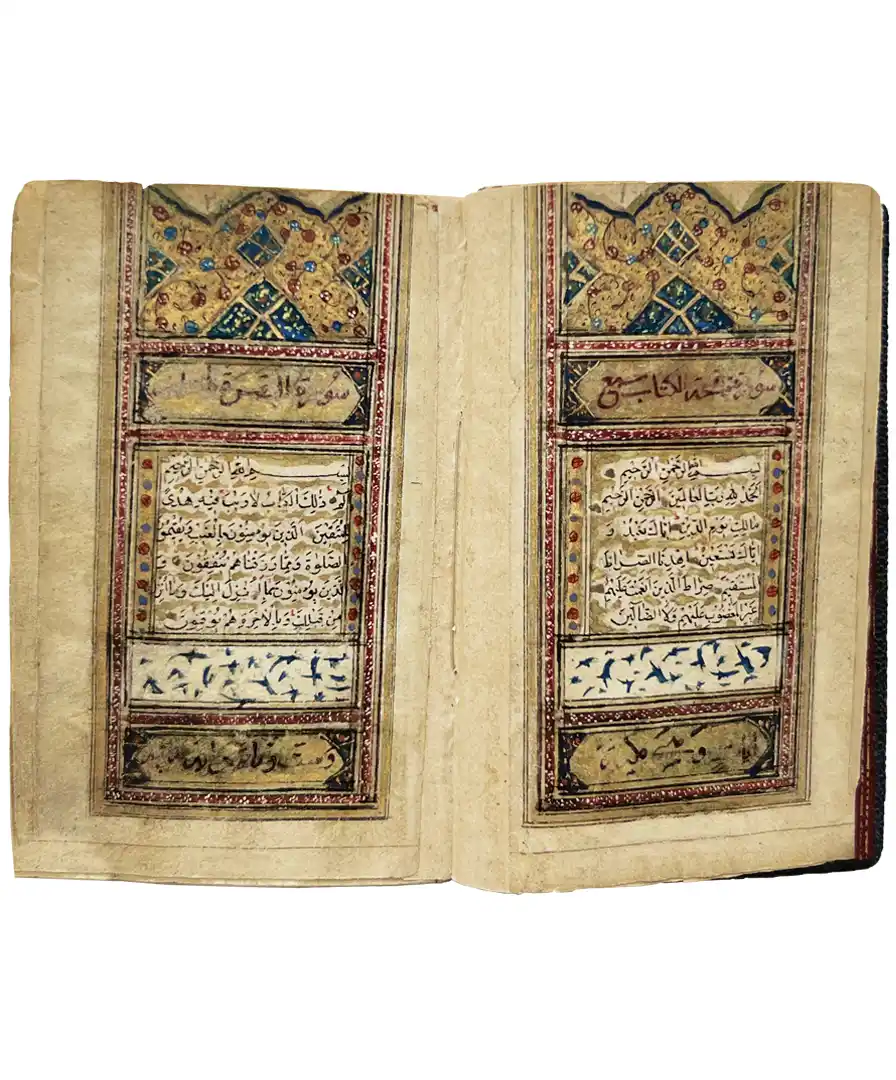 سورة فاتحة الكتاب سبع
بسم الله الرحمن الرحيم
الحمد لله رب العالمين الرحمن الرحيم
مالك يوم الدين اياك نعبد و
اياك نستعين اهدنا الصراط
المستقيم صراط الذين انعمت عليهم
غير المغضوب عليهم ولا الضالين
سورة البقرة
بسم الله الرحمن الرحيم
الم ذلك الكتاب لا ريب فيه هدى
للمتقين الذين يؤمنون بالغيب ويقيمون
الصلوة ومما رزقناهم ينفقون و
الذين يؤمنون بما انزل اليك وما انزل
من قبلك وبالاخرة هم يوقنون